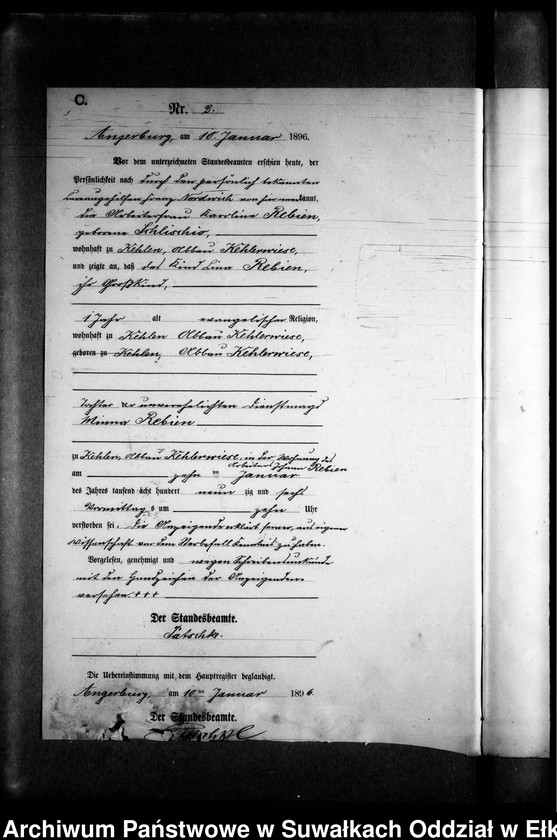 C.
Nr. 2.
Angerburg, am 10 Januar 1896.
Vor dem unterzeichneten Standesbeamten erschien heute, der
Persönlichkeit nach durch den persönlich bekannten
Franz Nordwich von hier kannt,
die Arbeiterfrau Karoline Rebien,
geborene Schlischio,
wohnhaft zu Kehlen, Abbau Kehlerwiese,
und zeigte an, daß das Kind Lina Rebien,
ihr Großkind,
1 Jahr alt evangelischer Religion,
wohnhaft zu Kehlen Abbau Kehlerwiese,
geboren zu Kehlen, Abbau Kehlerwiese,
Tochter der unverehelichten Dienstmagd
Minna Rebien
zu Kehlen, Abbau Kehlerwiese, in der Wohnung des
Arbeiters Johann Rebien
am zehn ten Januar
des Jahres tausend acht hundert neun zig und sechs
Vormittags um zehn Uhr
verstorben sei, die Anzeigende erklärt ferner, aus eigener
Wissenschaft von dem Sterbefall Kenntniß zu haben.
Vorgelesen, genehmigt und wegen Schreibensunkunde
mit den Handzeichen der Anzeigenden
versehen. + + +
Der Standesbeamte.
Tatschk.
Die Uebereinstimmung mit dem Hauptregister beglaubigt.
Angerburg, am 10 ten Januar 1896.
Der Standesbeamte.
Archiwum Państwowe w Suwałkach Oddział w Ełk